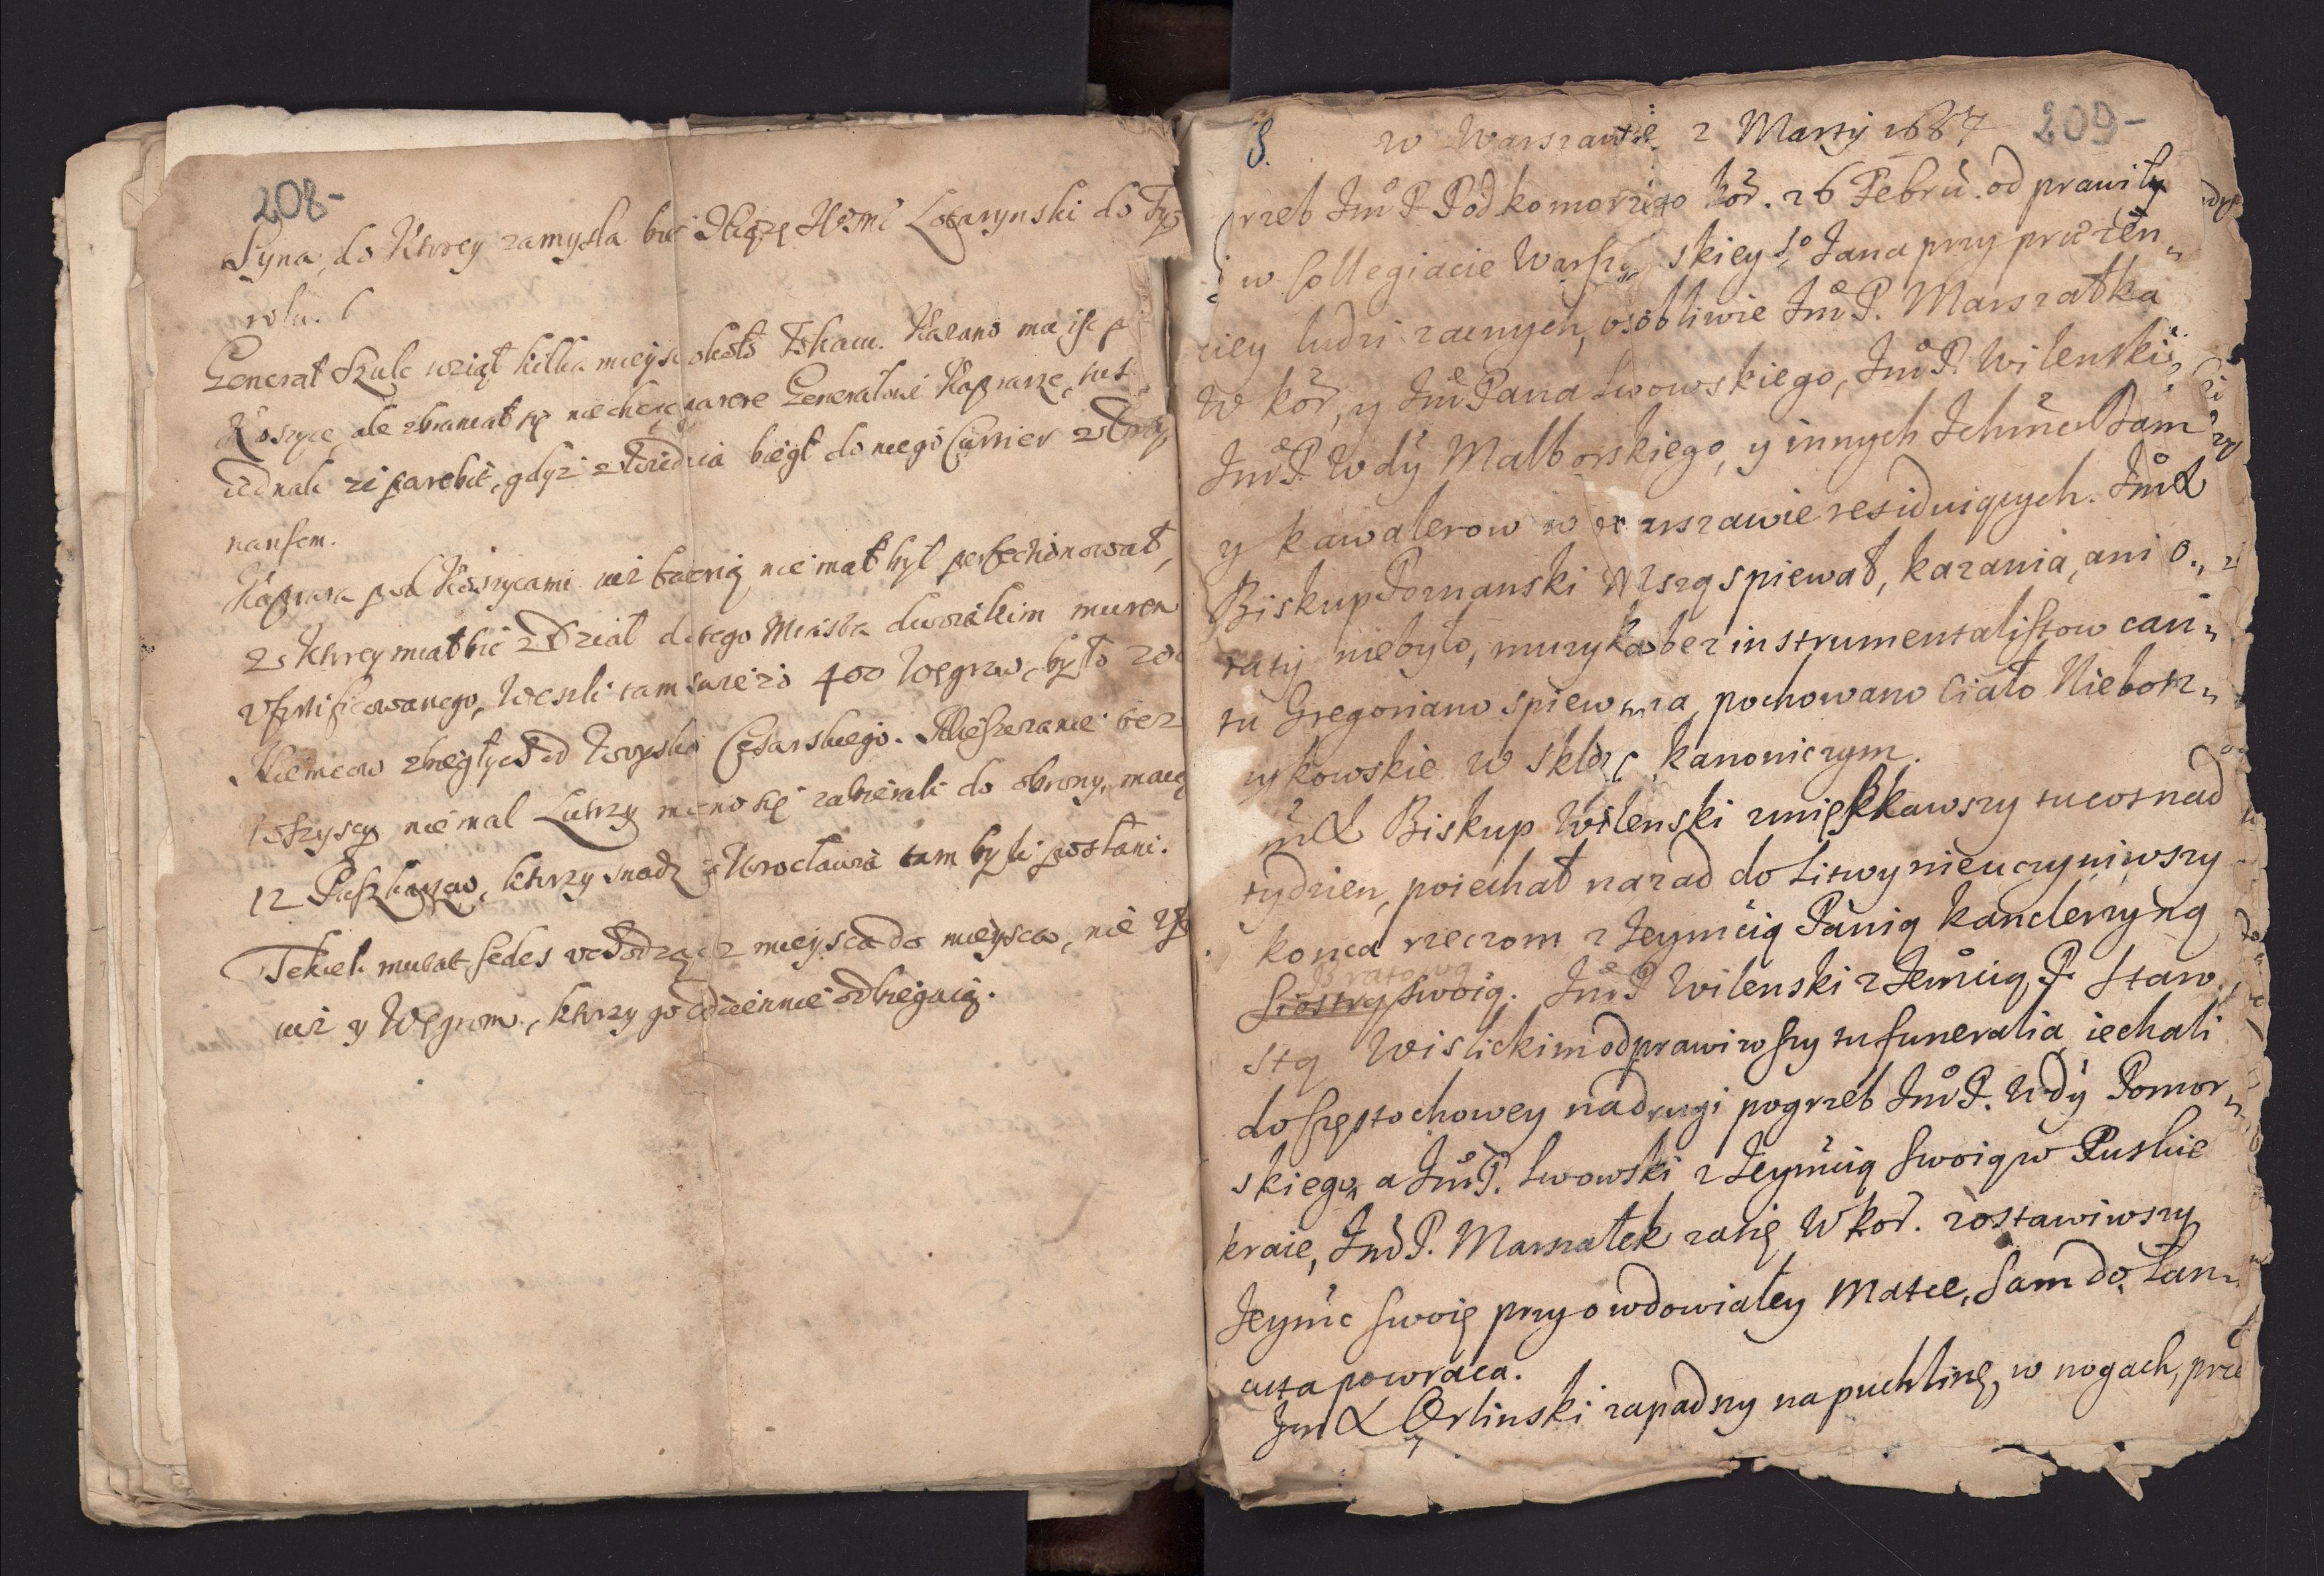 208-
Syna, do Ktorey zamysla bić Xiąże Jeo Mć Lotarynski do Tyr
rolu.
Generał Szulc wziął kilka mieysc około Tokaiu. Kazano ma iść p
Koszyce, ale zbraniał się niechcąc parere Generałowi Kaprarze, iest
iednak że parebit, gdyż z Wiednia biegł do niego Currier z Ordy
nansem.
Kaprara pod Koszycami iuż baterią nie mał był perfectionował,
z Ktorey miał bić z Dział do tego Miasta dwoiakim murem
ufortificowanego, Weszli tam świeżo 400 Węgrow, było 200
Niemcow zbiegłych od Woyska Cesarskiego. Mieszczanie też
wszyscy niemal Lutrzy mocno się zabierali do obrony, maią
12 Puszkarzow, ktorzy snadź z Wrocławia tam byli posłani.
Tekieli mutat sedes uchodząc z mieysca do mieysca, nie uf
iuż y Węgrom, ktorzy go codziennie odbiegaią.
8. w Warszawie 2 Martij 1687 209-
rzeb Jm̃ P. Podkomorzego Kor. 26 Febru. odprawiły
w Collegiacie Warsza skiey So Jana przy prezen„
ciey ludzi zacnych, osobliwie Jm̃ P. Marszałka
W Kor, y Jm̃ Pana Lwowskiego, Jm̃ P. Wilenskie
Jm̃ P. Wdy Malborskiego, y innych Ichm̃ Dam
y kawalerow w Warszawie residuiących. Jm̃ X
Biskup Poznanski Mszą spiewał, kazania, ani o„
ratij niebyło, muzyka bez instrumentalistow can„
tu Gregoriano spiewana, pochowano Ciało Niebosz„
zykowskie w sklepe kanoniczym.
m̃ X Biskup Wilenski zmięszkawszy tu cos nad
tydzien, poiechał nazad do Litwy nieuczyniwszy
konca rzeczom z Jeymcią Panią kanclerzyną
Bratową
Siostry swoią. Jm̃ P Wilenski z Jem̃cią P. Staro„
stą Wislickim odprawiwszy tu funeralia, iechali
do Częstochowey na drugi pogrzeb Jm̃ P. Wdy Pomor„
skiego, a Jm̃ P. Lwowski z Jeymcią swoią w Ruskie
kraie, Jm̃ P. Marszałek zasię W Kor. zostawiwszy
Jeymć swoię przy owdowiałey Matce, sam do Łan„
cuta powraca.
Jm̃ X Orlinski zapadszy na puchlinę w nogach, prze